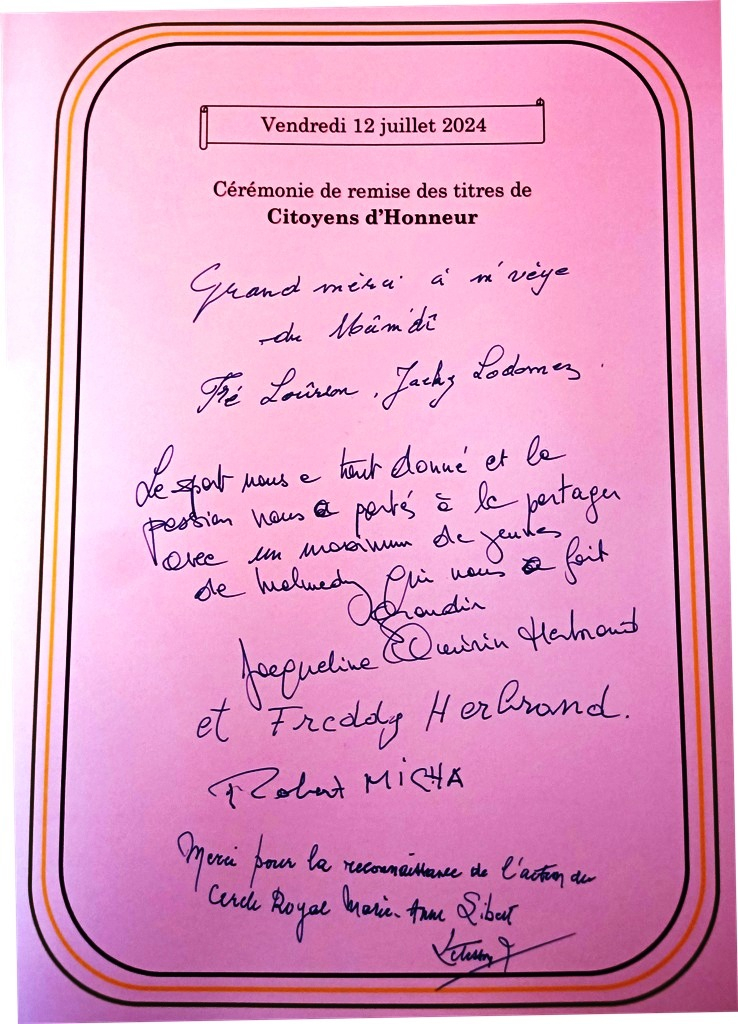 Vendredi 12 juillet 2024
Cérémonie de remise des titres de
Citoyens d'Honneur
Grand mèrci à m' vèye
du Mâm'dî
Tré Loûrson, Jacky Lodomez.
Le sport nous a tout donné et la
passion nous a portés à la partager
avec un maximum de jeunes
de Malmedy qui nous a fait
grandir
Jacqueline Quirin Herbrand
et Freddy Herbrand.
Robert MICHA
Merci pour la reconnaissance de l'action du
Cercle Royal Marie-Anne Libert